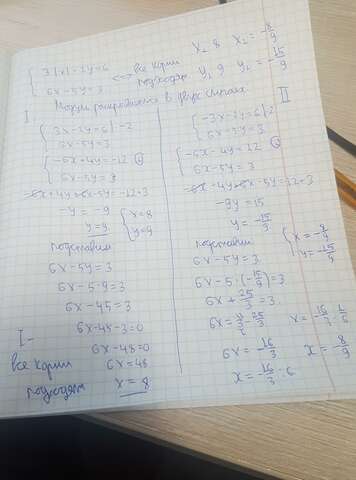 3|x|-2y=6
6x-5y=3
<=> все корни
подходят
x₁ 8 x₂ = -8/9
y₁ 9 y₂ = -15/9
Модуль раскрывается в двух случаях
I
3x-2y=6 | -2
6x-5y=3
-6x+4y=-12
6x-5y=3
-6x+4y+6x-5y=-12+3
-y=-9
y=9
x=8
y=9
подставим
6x-5y=3
6x-5·9=3
6x-45=3
6x-45-3=0
6x-48=0
6x=48
x=8
I-
все корни
подходят
II
-3x-2y=6 | 2
6x-5y=3
-6x-4y=12
6x-5y=3
-6x-4y+6x-5y=12+3
-9y=15
y=-15/9
x=-8/9
y=-15/9
подставим
6x-5y=3
6x-5·(-15/9)=3
6x+25/3=3
6x=-16/3
x=-16/3·6
x=-16/3·1/6
x=-8/9